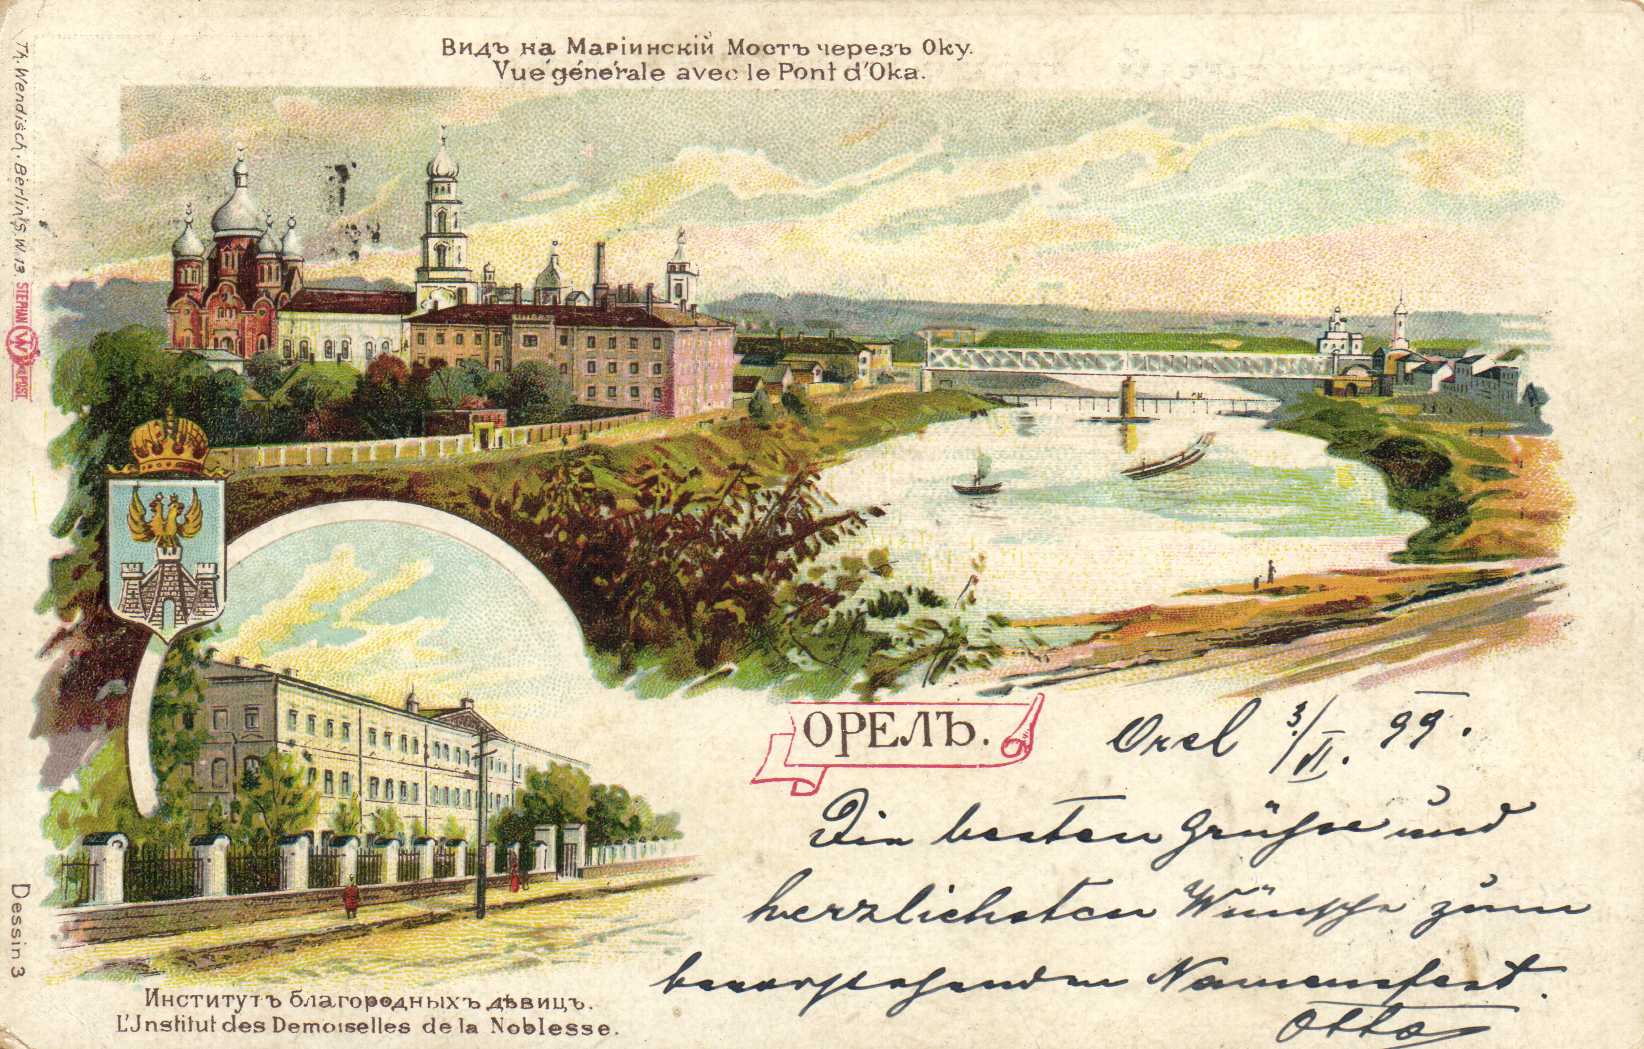 Видъ на Маріинскій Мостъ черезъ Оку.
Vue générale avec le Pont d'Oka.
Th. Wendisch. Berlin S.W. 13.
STEPHAN
W
Dessin 3
ОРЕЛЪ.
Orel 3./VI. 99.
Die besten Grüße und
herzlichsten Wünsche zum
bevorstehenden Namensfest.
Otto
Институтъ благородныхъ дѣвицъ.
L'Institut des Demoiselles de la Noblesse.